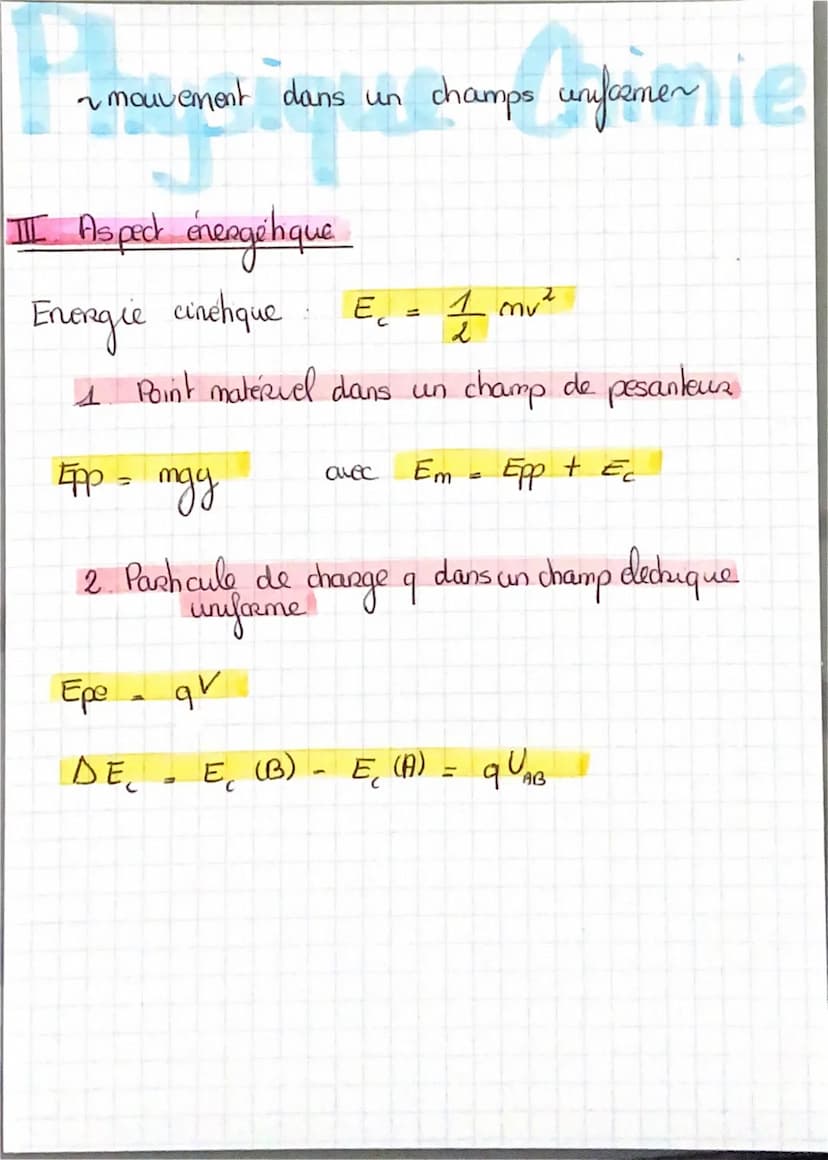 Physique Chimie
~ mouvement dans un champs uniforme ~
III. Aspect énergétique
Energie cinétique : E_c = 1/2 mv²
1. Point matériel dans un champ de pesanteur
Epp = mgy avec Em = Epp + E_c
2. Particule de charge q dans un champ électrique
uniforme
Epe = qV
ΔE_c = E_c (B) - E_c (A) = qU_AB